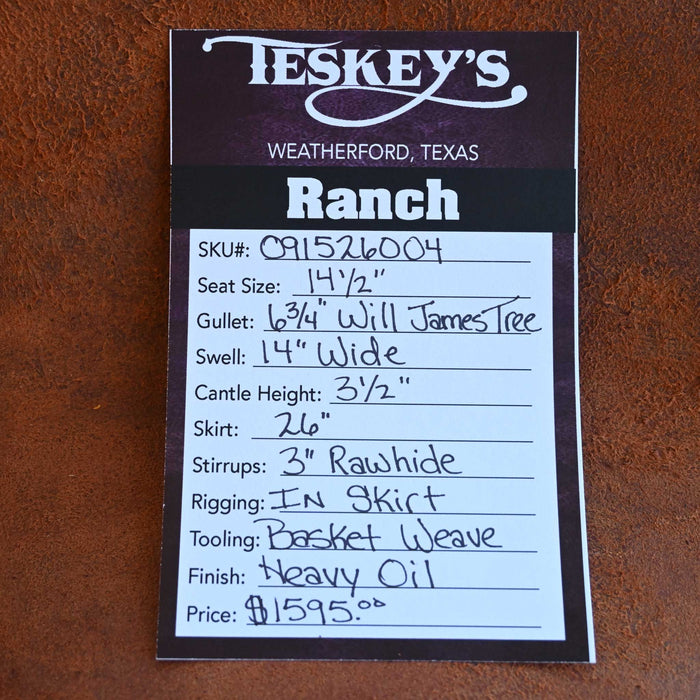 TESKEY'S
WEATHERFORD, TEXAS
Ranch
SKU#: 091526004
Seat Size: 14 1/2"
Gullet: 6 3/4" Will James Tree
Swell: 14" Wide
Cantle Height: 3 1/2"
Skirt: 26"
Stirrups: 3" Rawhide
Rigging: IN Skirt
Tooling: Basket Weave
Finish: Heavy Oil
Price: $1595.00